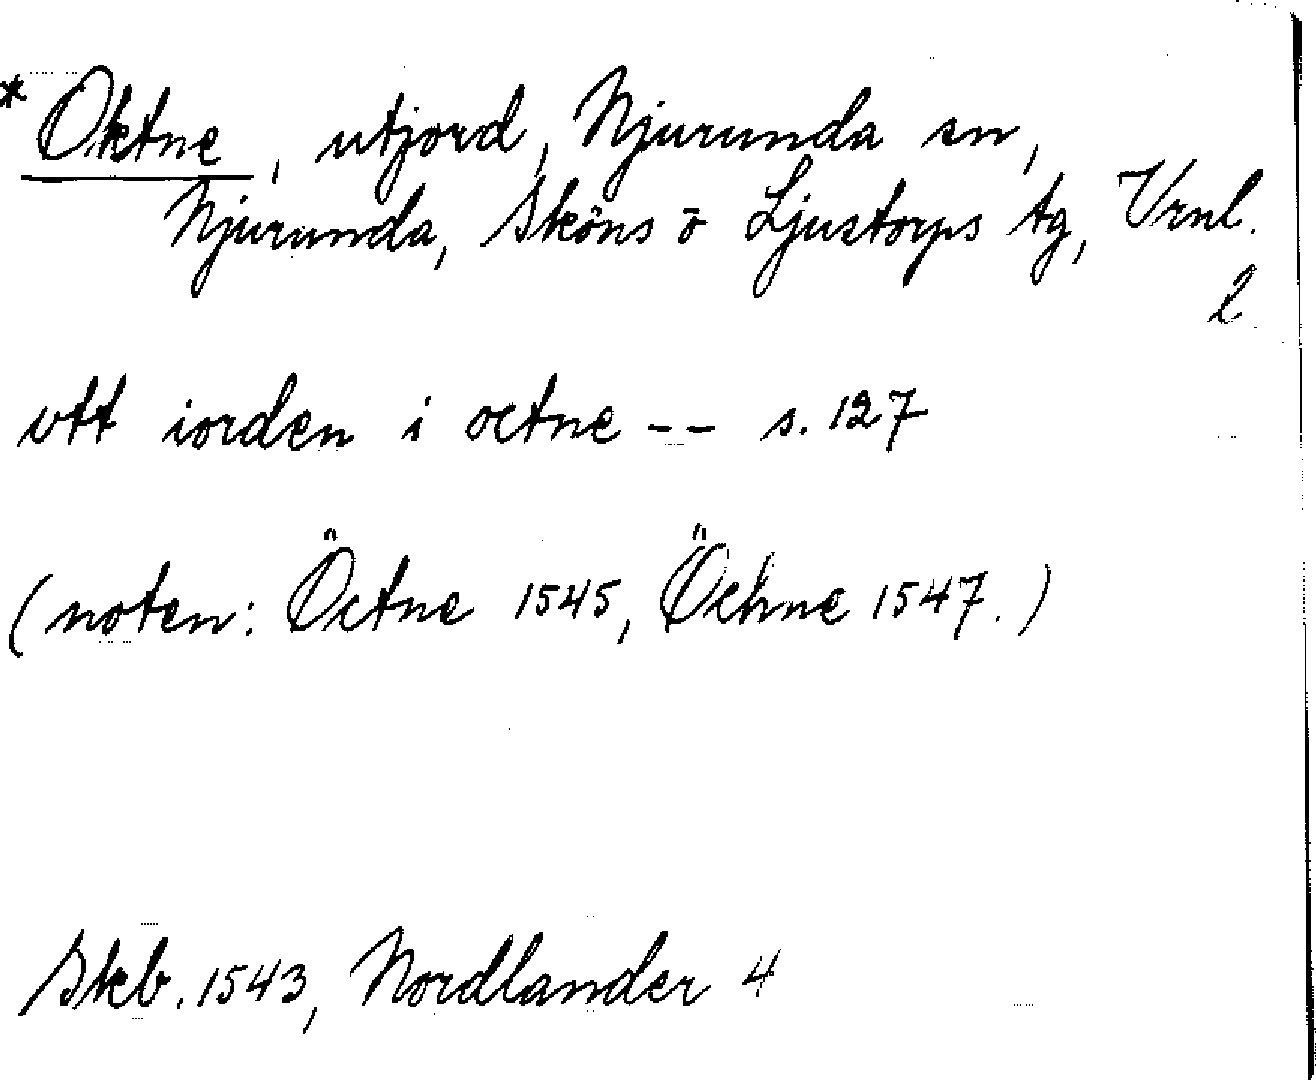 * Oktne, utjord, Njurunda sn,
Njurunda, Sköns o Ljustorps tg, Vrnl.
l
vtt iorden i octne -- s. 127
(noten: Öctne 1545, Öchne 1547.)
Skb. 1543, Nordlander 4